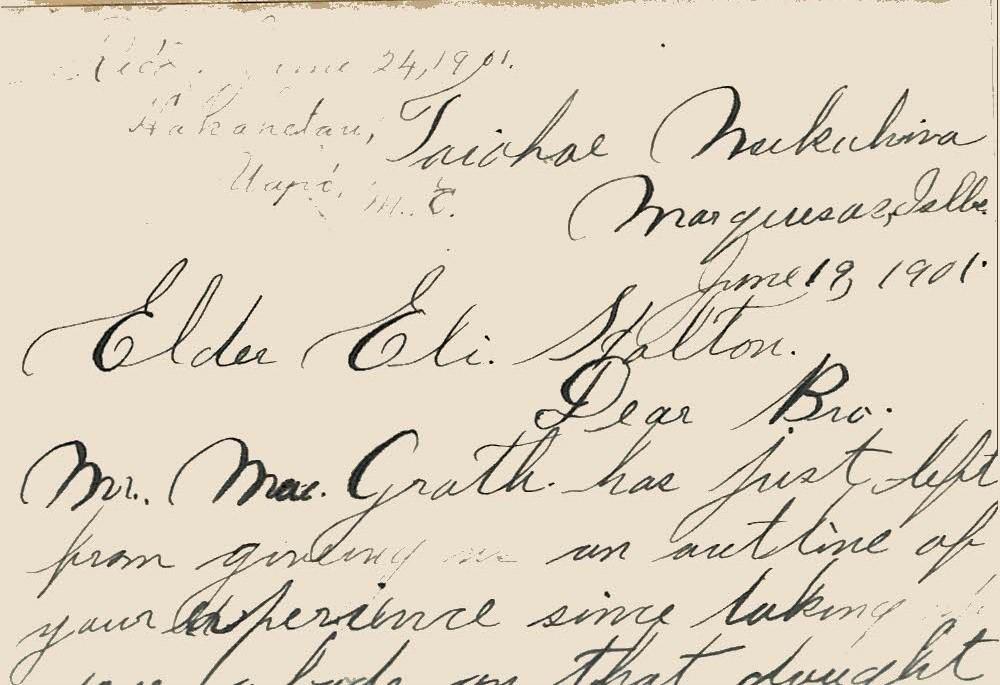 Recd. June 24, 1901.
Hakanetau,
Uapo, M.I.
Taiohae Nukuhiva
Marquesas, Islls.
June 19, 1901.
Elder Eli. Stalton.
Dear Bro.
Mr. Mac. Grath. has just left
from giveing me an outline of
your experience since taking
up abode on that